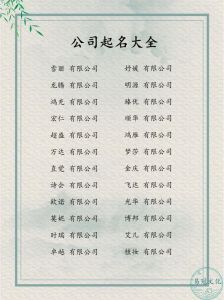 公司起名大全
雪丽 有限公司 好媛 有限公司
龙腾 有限公司 明源 有限公司
鸿光 有限公司 臻优 有限公司
宏仁 有限公司 顺华 有限公司
超盛 有限公司 鸿雁 有限公司
万达 有限公司 梦莎 有限公司
直觉 有限公司 金庆 有限公司
诗会 有限公司 飞达 有限公司
欧诺 有限公司 光华 有限公司
英妮 有限公司 博邦 有限公司
时瑞 有限公司 艾儿 有限公司
卓越 有限公司 植妆 有限公司
易冠文化